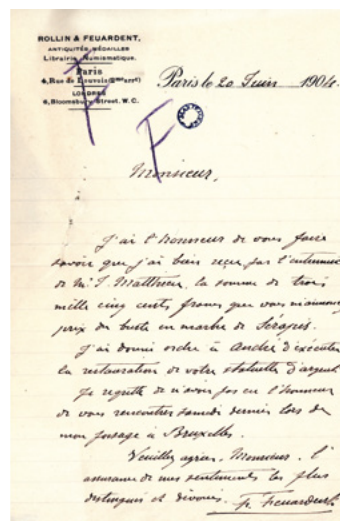 ROLLIN & FEUARDENT,
ANTIQUITÉS, MÉDAILLES
Librairie Numismatique.
Paris
4, Rue de Louvois (2me arrt)
LONDRES
6, Bloomsbury Street. W. C.
Paris le 20 Juin 1904.
F F
Monsieur,
J'ai l'honneur de vous faire
savoir que j'ai bien reçu par l'entremise
de Mr. J. Matthieu, la somme de trois
mille cinq cents francs que vous
prix du buste en marbre de Sérapis.
J'ai donné ordre à André d'exécuter
la restauration de votre statuette d'argent
Je regrette de n'avoir pas eu l'honneur
de vous rencontrer samedi dernier lors de
mon passage à Bruxelles.
Veuillez agréer, Monsieur, l'
assurance de mes sentiments les plus
distingués et dévoués. Fr. Feuardent